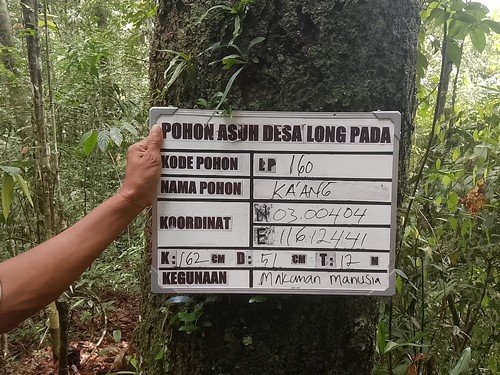 POHON ASUH DESA LONG PADA
KODE POHON LP 160
NAMA POHON KA'ANG
KOORDINAT N 03.00404
E 116.12441
K: 162 CM D: 51 CM T: 12 M
KEGUNAAN Makanan Manusia